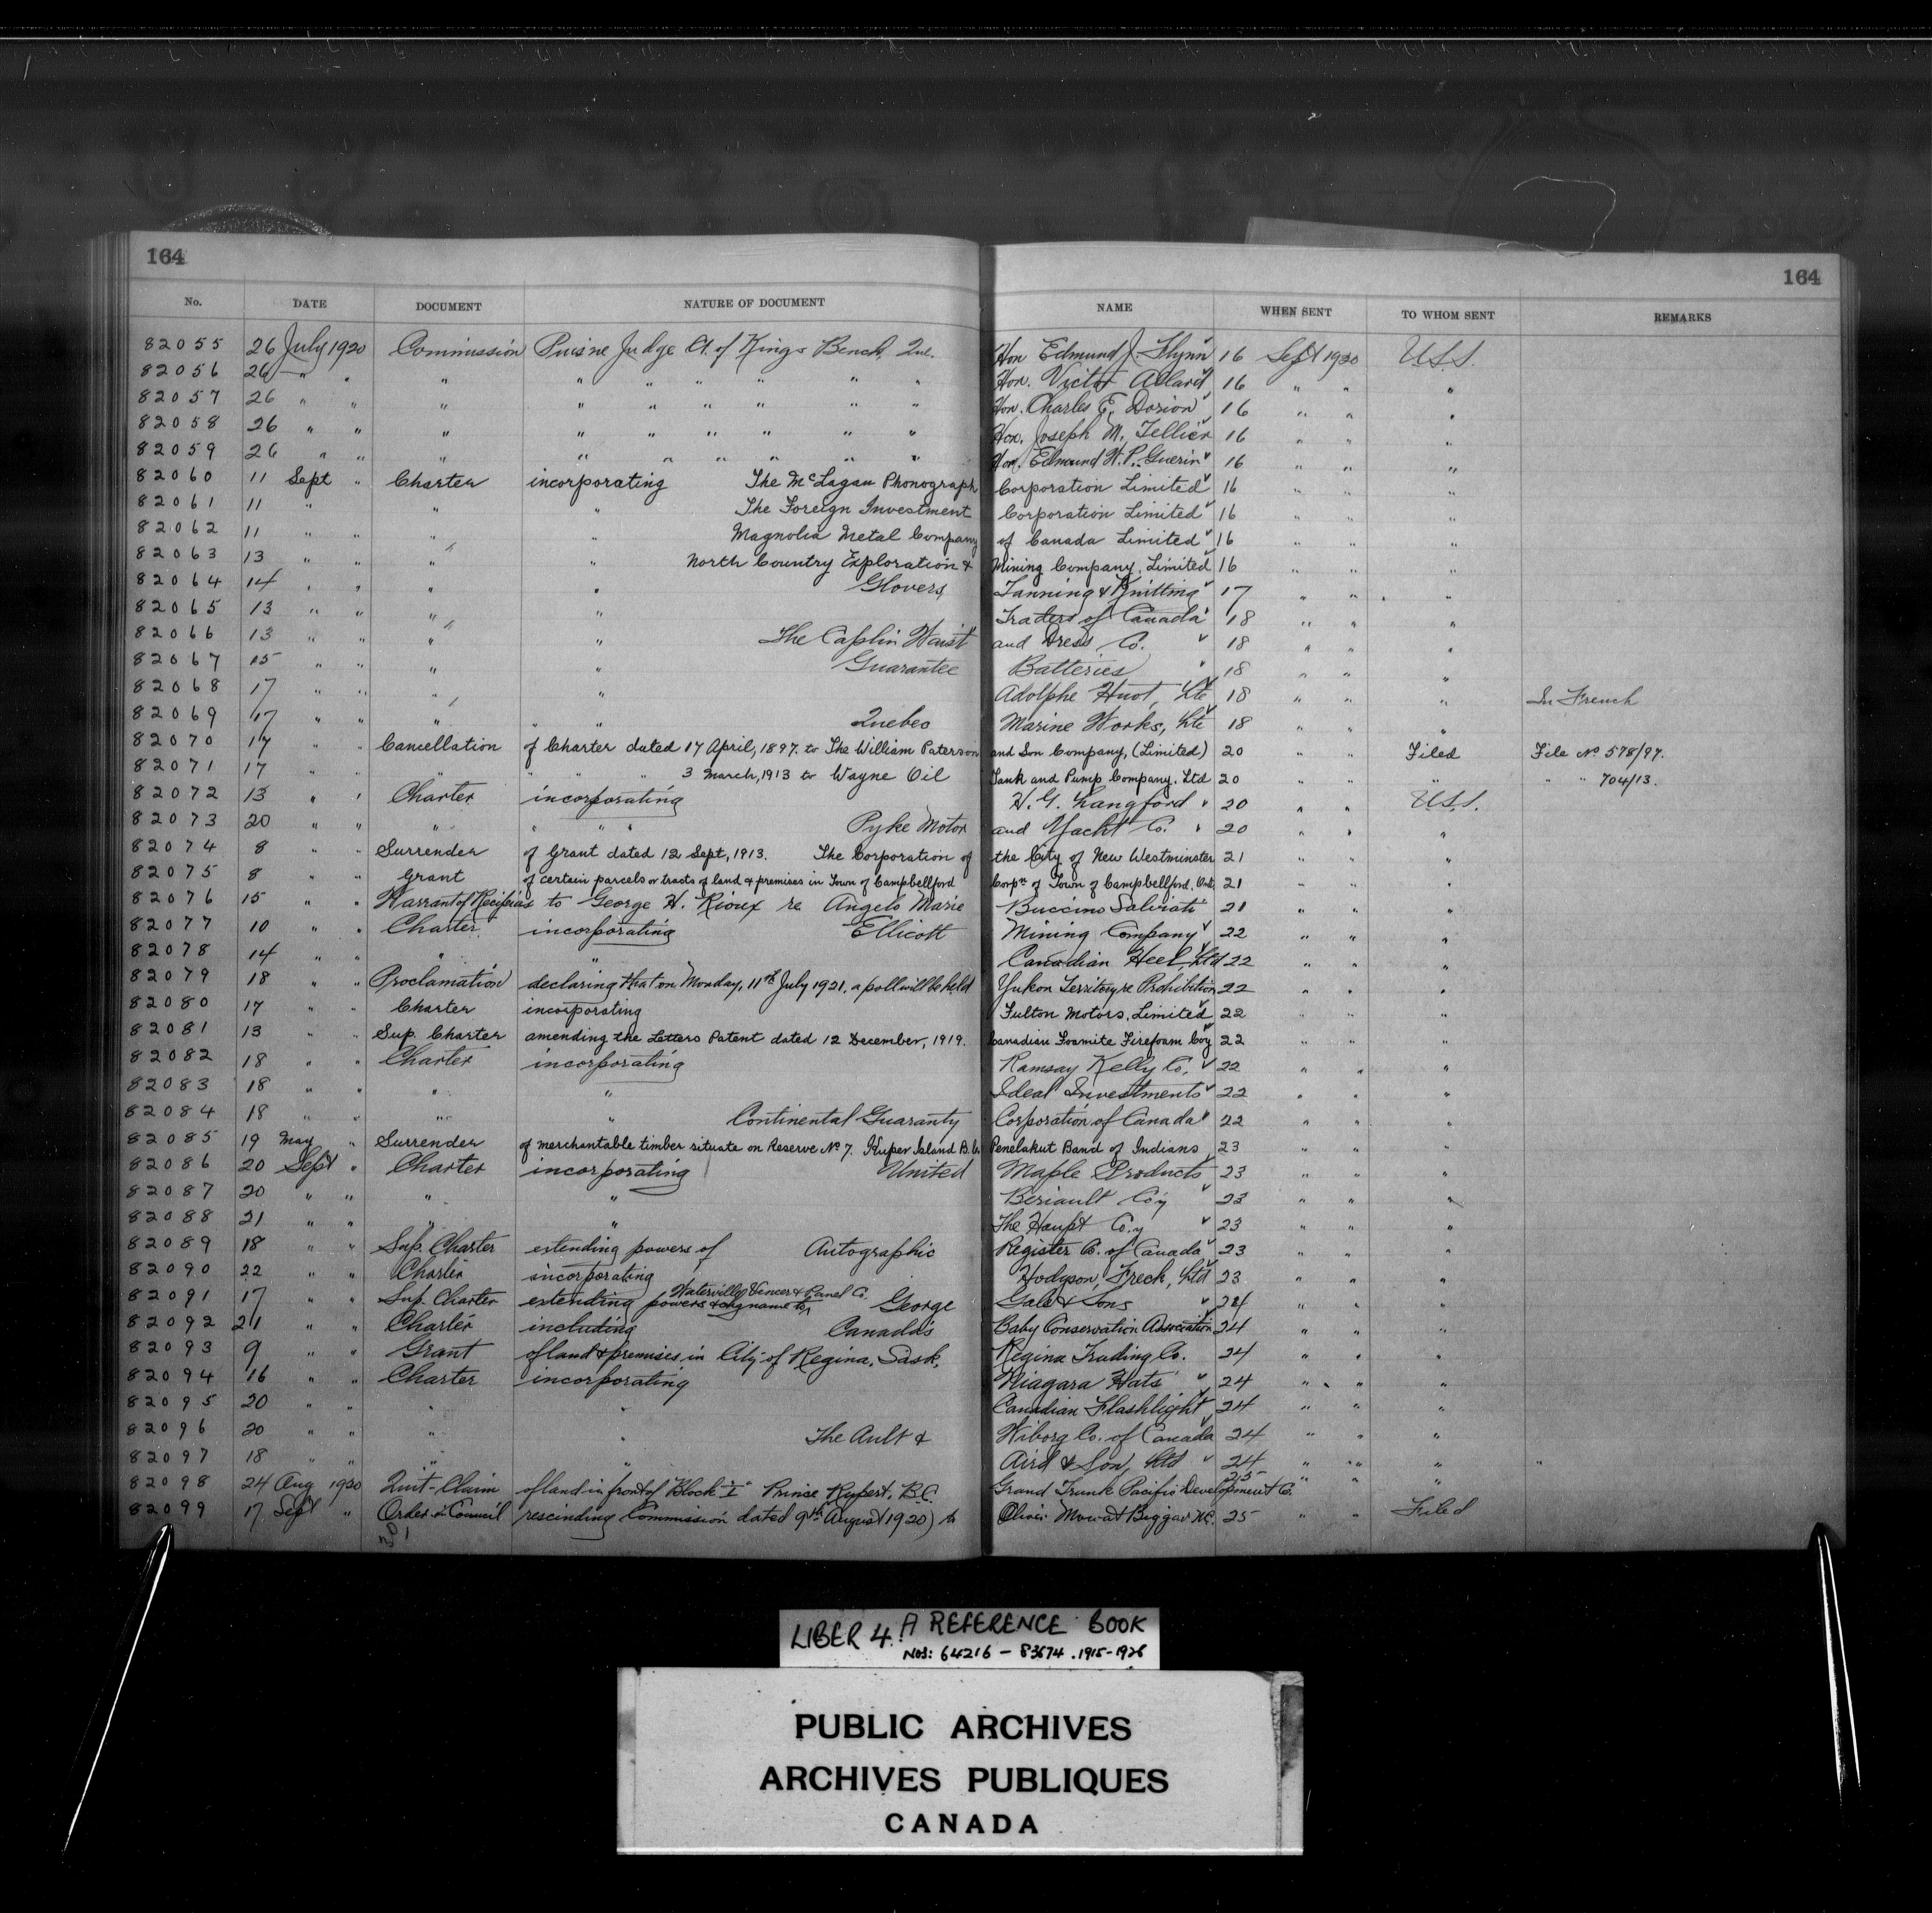 164 164
No. DATE DOCUMENT NATURE OF DOCUMENT NAME WHEN SENT TO WHOM SENT REMARKS
82055 26 July 1920 Commission Puisne Judge Ct. of Kings Bench, Que. Hon Edmund J. Flynn 16 Sept 1920 U.S.S.
82056 26 " " " " " " " " " Hon. Victor Allard 16 " " "
82057 26 " " " " " " " " " Hon. Charles E. Dorion 16 " " "
82058 26 " " " " " " " " " Hon. Joseph M. Tellier 16 " " "
82059 26 " " " " " " " " " Hon. Edmund W. P. Guerin 16 " " "
82060 11 Sept " Charter incorporating The McLagan Phonograph Corporation Limited 16 " " "
82061 11 " " " The Foreign Investment Corporation Limited 16 " " "
82062 11 " " " " Magnolia Metal Company of Canada Limited 16 " " "
82063 13 " " " " North Country Exploration & Mining Company, Limited 16 " " "
82064 14 " " " " Glovers Tanning & Knitting 17 " " "
82065 13 " " " " Traders of Canada 18 " " "
82066 13 " " " " The Caplin Waist and Dress Co. 18 " " "
82067 15 " " " " Guarantee Batteries 18 " " "
82068 17 " " " " Adolphe Huot, Lte 18 " " " In French
82069 17 " " " " " Quebec Marine Works, Lte 18 " " "
82070 17 " " Cancellation of Charter dated 17 April, 1897. to The William Paterson and Son Company, (Limited) 20 " " Filed File No 578/97.
82071 17 " " " " " " 3 March, 1913 to Wayne Oil Tank and Pump Company, Ltd 20 " " " " " 704/13.
82072 13 " " Charter incorporating H. G. Langford 20 " " U.S.S.
82073 20 " " " " " " Pyke Motor and Yacht Co. 20 " " "
82074 8 " " Surrender of Grant dated 12 Sept, 1913. The Corporation of the City of New Westminster 21 " " "
82075 8 " " Grant of certain parcels or tracts of land & premises in Town of Campbellford Corpn of Town of Campbellford, Ont. 21 " " "
82076 15 " " Warrant of Recipias to George H. Rioux re Angelo Marie Buccino Salviati 21 " " "
82077 10 " " Charter incorporating Ellicott Mining Company 22 " " "
82078 14 " " " " Canadian Heel, Ltd 22 " " "
82079 18 " " Proclamation declaring that on Monday, 11th July 1921, a poll will be held Yukon Territory re Prohibition 22 " " "
82080 17 " " Charter incorporating Fulton Motors, Limited 22 " " "
82081 13 " " Sup. Charter amending the Letters Patent dated 12 December, 1919. Canadian Foamite Firefoam Coy 22 " " "
82082 18 " " Charter incorporating Ramsay Kelly Co. 22 " " "
82083 18 " " " " Ideal Investments 22 " " "
82084 18 " " " " Continental Guaranty Corporation of Canada 22 " " "
82085 19 May " Surrender of merchantable timber situate on Reserve No 7. Kuper Island B.C. Penelakut Band of Indians 23 " " "
82086 20 Sept " Charter incorporating United Maple Products 23 " " "
82087 20 " " " " Beriault Coy 23 " " "
82088 21 " " " " The Haupt Coy 23 " " "
82089 18 " " Sup. Charter extending powers of Autographic Register Co. of Canada 23 " " "
82090 22 " " Charter incorporating Hodgson, Freck, Ltd 23 " " "
82091 17 " " Sup. Charter extending powers & chg name to Waterville Veneer & Panel Co. George Gale & Sons 24 " " "
82092 21 " " Charter including Canada's Baby Conservation Association 24 " " "
82093 9 " " Grant of land & premises in City of Regina, Sask. Regina Trading Co. 24 " " "
82094 16 " " Charter incorporating Niagara Hats 24 " " "
82095 20 " " " " Canadian Flashlight 24 " " "
82096 20 " " " " The Ault & Wiborg Co. of Canada 24 " " "
82097 18 " " " " Aird & Son, Ltd 24 " " " "
82098 24 Aug 1920 Quit-Claim of land in front of "Block I" Prince Rupert, B.C. Grand Trunk Pacific Development Co. 25 " " "
82099 17 Sept " Order in Council rescinding Commission dated 9th August 1920) to Oliver Mowat Biggar K.C. 25 " " Filed
LIBER 4. A REFERENCE BOOK
NOS: 64216 - 83674 . 1915-1926
PUBLIC ARCHIVES
ARCHIVES PUBLIQUES
CANADA